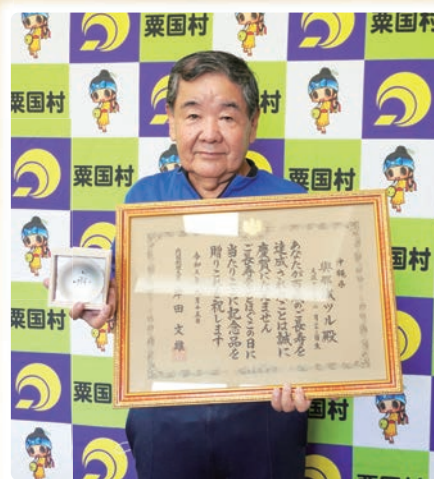 粟国村
粟国村
粟国村
粟国村
粟国村
粟国村
粟国村
粟国村
沖縄県
ツル殿
あなたが のご長寿を
達成されたことは誠に
慶賀にたえません
ご長寿をことほぎこの日に
当たりここに記念品を
贈りこれを祝します
令和 十五日
内閣総理大臣 岸田文雄